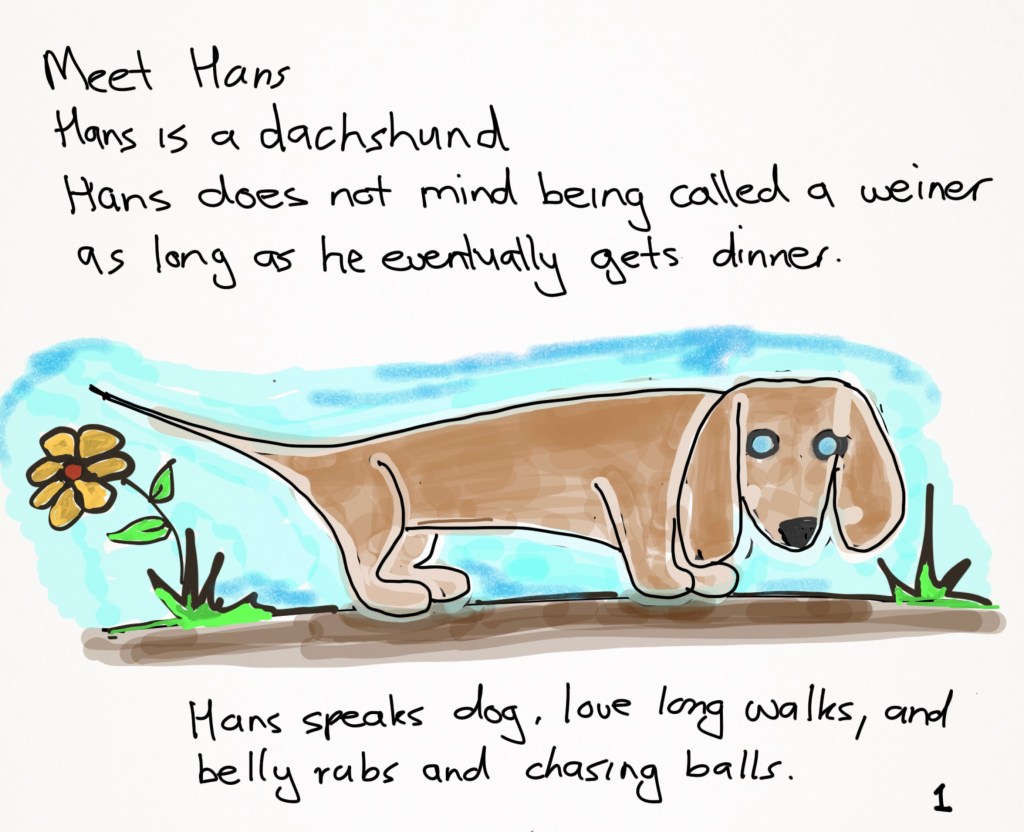 Meet Hans
Hans is a dachshund
Hans does not mind being called a weiner
as long as he eventually gets dinner.
Hans speaks dog, love long walks, and
belly rubs and chasing balls.
1